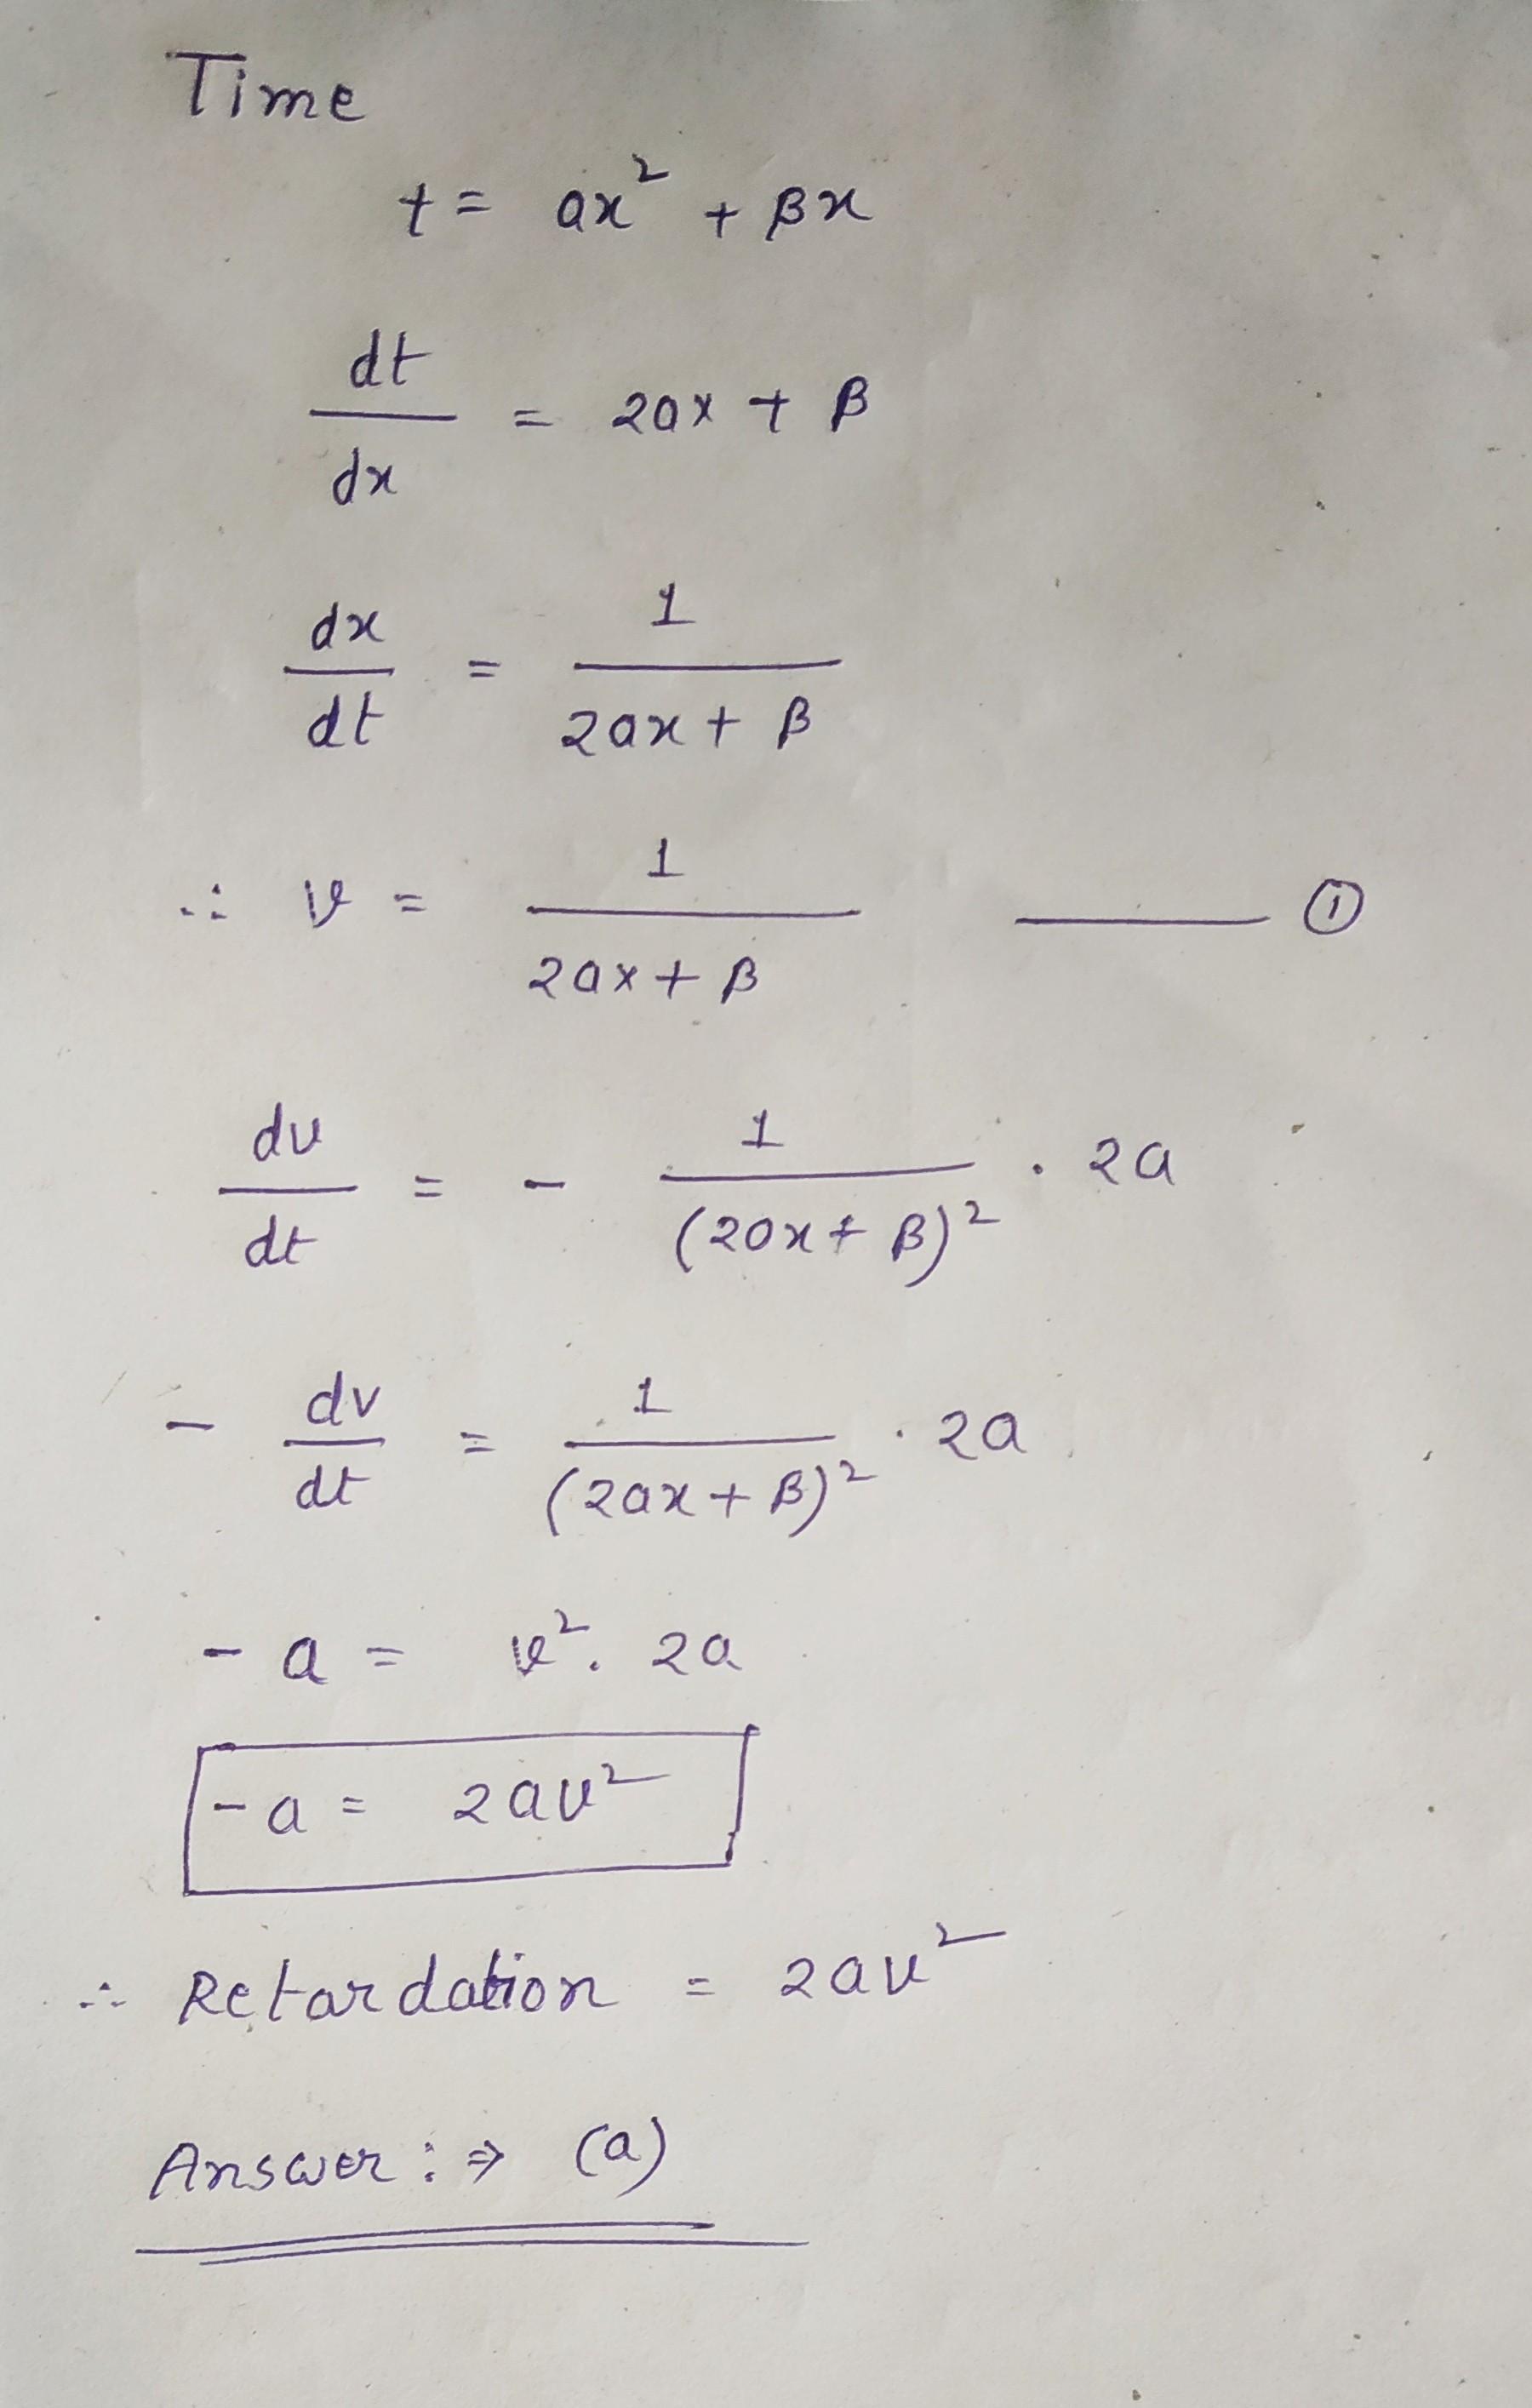 Time
t = ax² + βx
dt/dx = 2ax + β
dx/dt = 1/(2ax + β)
∴ v = 1/(2ax + β) —— ①
dv/dt = - 1/(2ax + β)² · 2a
- dv/dt = 1/(2ax + β)² · 2a
- a = v². 2a
- a = 2av²
∴ Retardation = 2av²
Answer :⇒ (a)